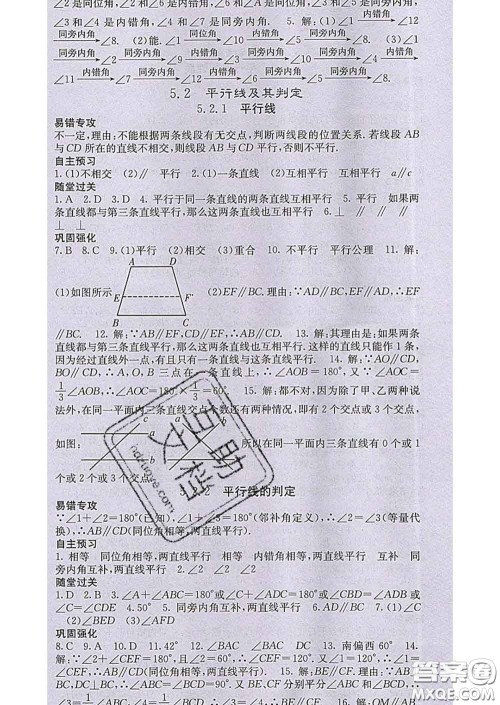 ∠2是同位角,∠2和∠6是内错角,∠2和∠5是同旁内角,
∠3和∠1是内错角,∠4和∠7是同旁内角. 5. 解:(1)∠1 内错角 ∠12
同旁内角 ∠8. (2)能. ∠1 同位角 ∠9 内错角 ∠5 同旁内角
内错角 同旁内角 内错角 同旁内角
∠11 ∠7 ∠8.
5.2 平行线及其判定
5.2.1 平行线
易错专攻
不一定,理由:不能根据两条线段有无交点,判断两线段的位置关系. 若线段AB
与CD所在的直线不相交,则线段AB与CD平行,否则不平行.
自主预习
1. (1)不相交 (2)∥ 平行 2. (1)一条直线 (2)互相平行 互相平行 a∥c
随堂过关
1. A 2. D 3. D 4. 平行于同一条直线的两条直线互相平行 5. 平行 如果两
条直线都与第三条直线平行,那么这两条直线也互相平行 6. ⊥ ∥ ∥ ⊥ ⊥
巩固强化
7. B 8. C 9. (1)平行 (2)相交 (3)重合 10. 不平行 平行公理 11. 解:
A D
(1)如图所示. E F (2)EF∥BC. 理由:∵AD∥BC,EF∥AD,∴EF
B C
∥BC. 12. 解:∵AB∥EF,CD∥EF,∴AB∥CD. 13. 解:其理由是:如果两条
直线都与第三条直线平行,那么这两条直线也互相平行. 这样的直线只能作1条,
因为经过直线外一点,有且只有一条直线与这条直线平行. 14. 解:∵AO∥CD,
BO∥CD,∴A,O,B三点在一条直线上,∴∠AOB=180°. 又∵∠AOC=
1/3∠AOB,∴∠AOC=180°×1/3=60°. 15. 解:都不对,因为除了甲、乙两种说
法外,在同一平面内三条直线交点个数还有两种情况,即有2个交点或3个交点,
如图: 所以在同一平面内三条直线有0个或1
个或2个或3个交点.
平行线的判定
易错专攻
∵∠1+∠2=180°(已知),∠1+∠3=180°(邻补角定义),∴∠2=∠3(等量代
换),∴AB∥CD(同位角相等,两直线平行).
自主预习
1. 相等 同位角相等,两直线平行 相等 内错角相等,两直线平行 互补 同
旁内角互补,两直线平行
随堂过关
1. D 2. B 3. ∠A+∠ABC=180°或∠C+∠ADC=180°或∠CBD=∠ADB或
∠C=∠CDE 4. 50° 5. 同旁内角互补,两直线平行 6. AD∥BC 7. (1)∠C
(2)∠BED (3)∠AFD
巩固强化
8. C 9. A 10. D 11. 42° 12. BC DE ∠B ∠C BC DE 13. 南偏西60° 14.
解:∵∠2+∠CEF=180°,∴∠2=180°-∠CEF. 又∵∠1+∠CEF=180°,∴∠1=
180°-∠CEF,∴∠1=∠2,∴AB∥CD(同位角相等,两直线平行). 15. 解:理由:∵AB⊥
BC,DC⊥BC,∴∠ABC=∠BCD=90°. 又∵BE,CF分别平分∠ABC和∠BCD,
互助文档
hdzuoye.com
答案圈
MXQE.COM